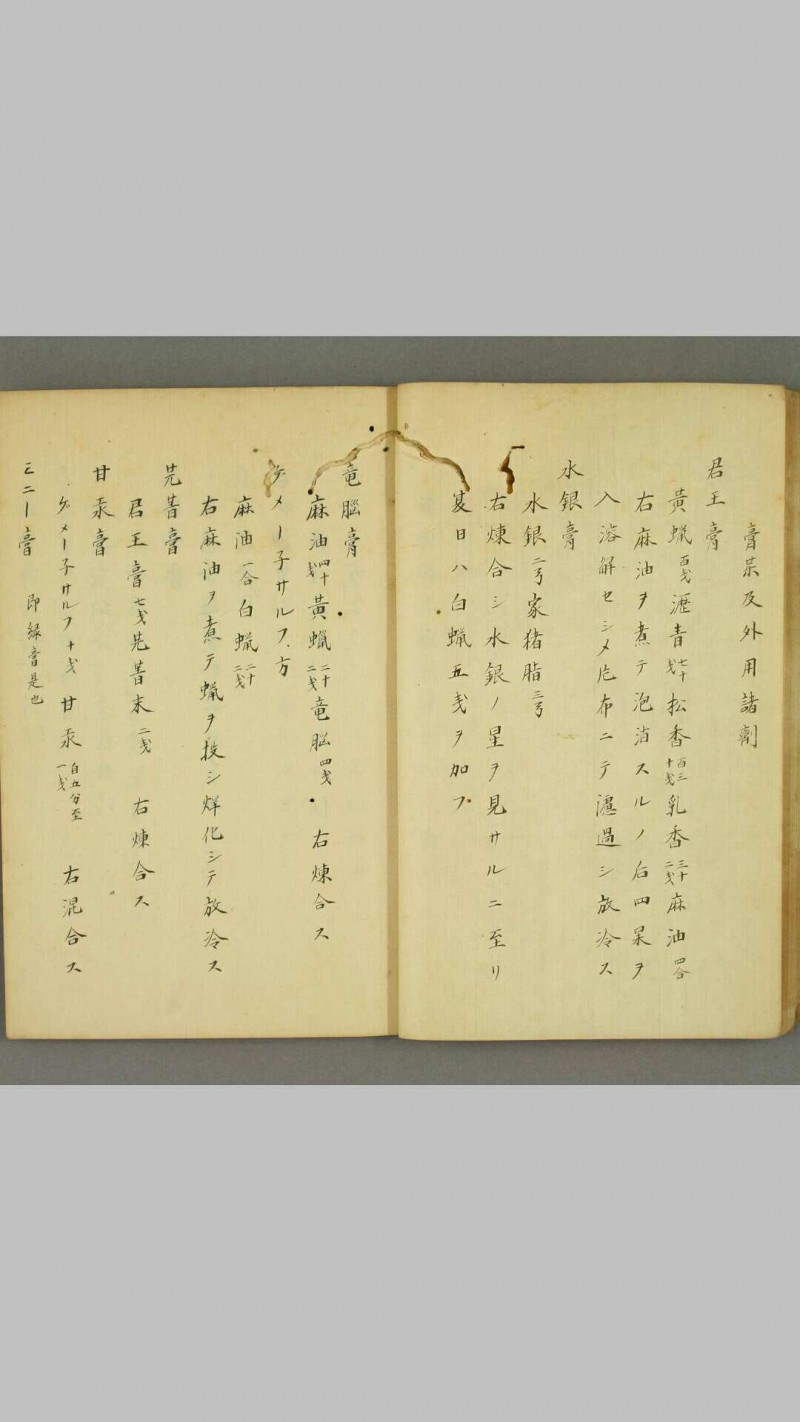 膏薬及外用諸劑
君王膏
黃蝋百戔瀝青七十戔松香百三十戔乳香三十二戔麻油四合
右麻油ヲ煮テ泡消スルノ后四品ヲ
入溶解セシメ布ニテ濾過シ放冷ス
水銀膏
水銀二弓家猪脂三弓
右煉合シ水銀ノ星ヲ見サルニ至リ
夏日ハ白蝋五戔ヲ加フ
竜腦膏
麻油四十戔黃蝋二十二戔竜脳四戔右煉合ス
ゲメー子サルフ方
麻油一合白蝋二十二戔
右麻油ヲ煮テ蝋ヲ投シ烊化シテ放冷ス
芫菁膏
君王膏七戔芫菁末二戔右煉合ス
甘汞膏
ゲメー子サルフ十戔甘汞自五分至一戔右混合ス
ミニー膏即緑膏是也